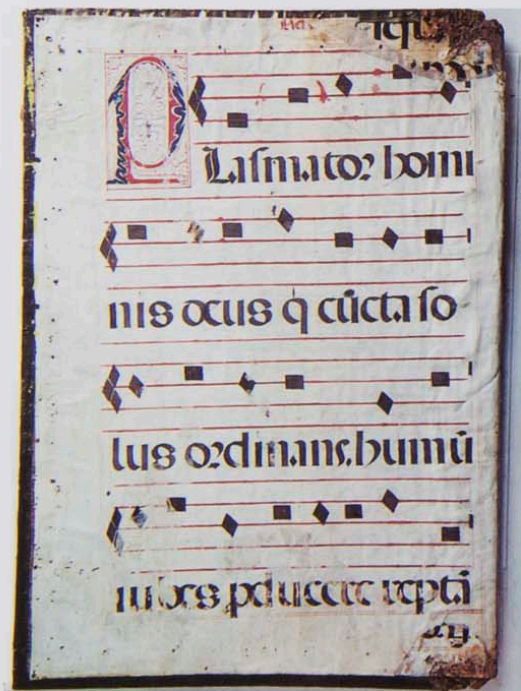 PLasmator homi
nis deus q̄ cūcta so
lus ordinans. humū
iubes ꝓducere reptā